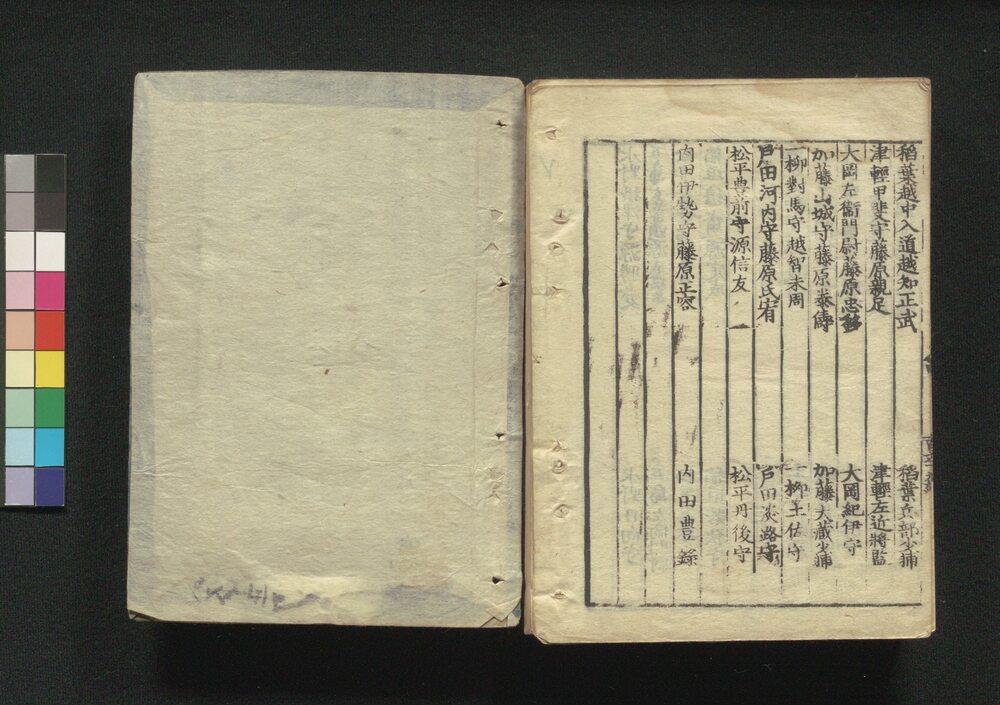 稲葉越中入道越知正武 稲葉兵部少輔
津輕甲斐守藤原親足 津輕左近將監
大岡左衛門尉藤原忠移 大岡紀伊守
加藤山城守藤原泰儔 加藤大藏少輔
一柳對馬守越智末周 一柳土佐守
戸田河内守藤原氏宥 戸田淡路守
松平豊前守源信友 松平丹後守
内田伊勢守藤原正容 内田豊録